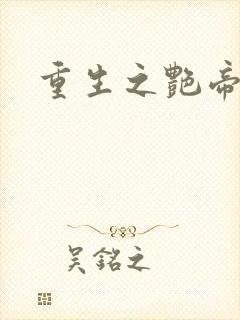 重生之艷帝
吳銘之